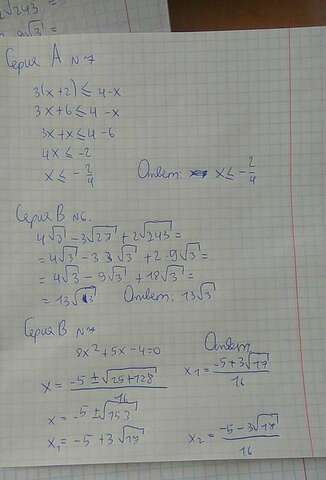 √243 =
9√3 =
Серия А №7
3(x+2) ≤ 4-x
3x+6 ≤ 4-x
3x+x ≤ 4-6
4x ≤ -2
x ≤ -2/4 Ответ: x ≤ -2/4
Серия В №6.
4√3 - 3√27 + 2√243 =
= 4√3 - 3·3√3 + 2·9√3 =
= 4√3 - 9√3 + 18√3 =
= 13√3 Ответ: 13√3
Серия В №7
8x²+5x-4=0 Ответ
x = (-5±√(25+128))/16 x₁ = (-5+3√17)/16
x = -5±√153
x₁ = -5+3√17 x₂ = (-5-3√17)/16